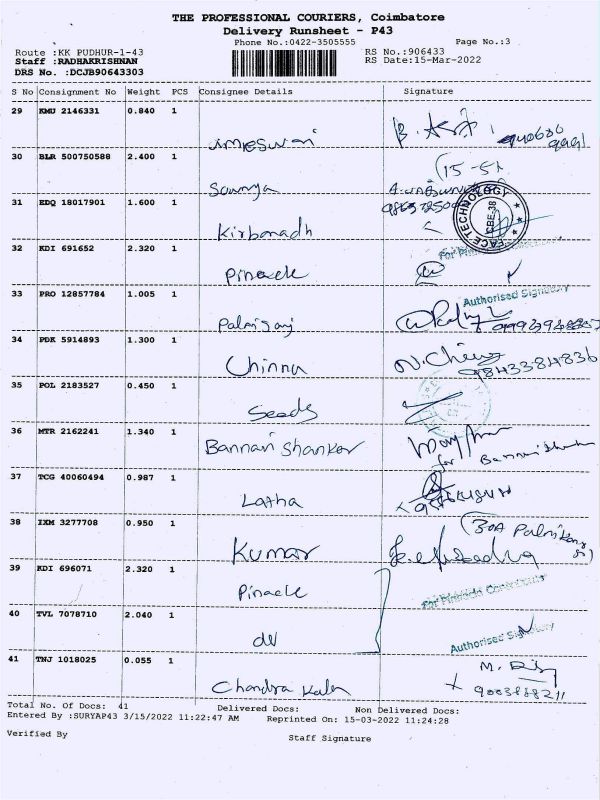 THE PROFESSIONAL COURIERS, Coimbatore
Delivery Runsheet - P43
Phone No.:0422-3505555 Page No.:3
Route :KK PUDHUR-1-43 RS No.:906433
Staff :RADHAKRISHNAN RS Date:15-Mar-2022
DRS No. :DCJB90643303
S No Consignment No Weight PCS Consignee Details Signature
29 KMU 2146331 0.840 1
umeswari
30 BLR 500750588 2.400 1 (15-5)
Sowmya
31 EDQ 18017901 1.600 1 FACE TECHNOLOGY CBE-38
Kirbanadh
32 KDI 691652 2.320 1
Pinacle
33 PRO 12857784 1.005 1 Authorised Signatory
Palnisamy
34 PDK 5914893 1.300 1 N.
Chinna 9843384836
35 POL 2183527 0.450 1
Seeds
36 MTR 2162241 1.340 1
Bannari Shankar for Bannari
37 TCG 40060494 0.987 1
Latha
38 IXM 3277708 0.950 1
Kumar
39 KDI 696071 2.320 1
Pinacle For Pinnacle
40 TVL 7078710 2.040 1
do Authorised Signatory
41 TNJ 1018025 0.055 1 M.
Chandra Kala
Total No. Of Docs: 41 Delivered Docs: Non Delivered Docs:
Entered By :SURYAP43 3/15/2022 11:22:47 AM Reprinted On: 15-03-2022 11:24:28
Verified By Staff Signature